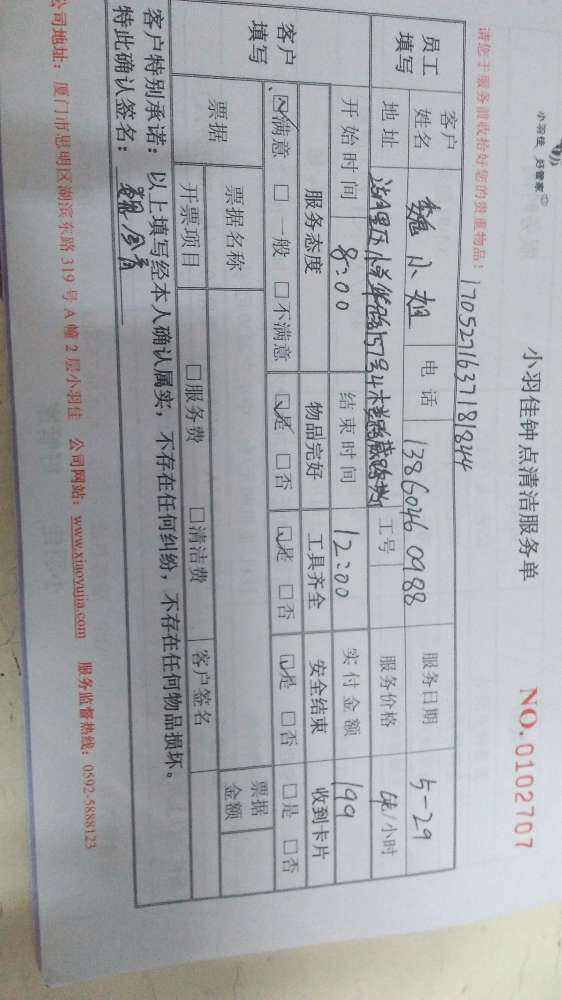 小羽佳 好管家
小羽佳钟点清洁服务单
NO. 0102707
请您于服务前收拾好您的贵重物品！ 1705221637181844
员工填写 客户姓名 魏小姐 电话 13860460988 服务日期 5-29
地址 157号 工号 服务价格 /小时
开始时间 8:00 结束时间 12:00 实付金额 199
客户填写 服务态度 物品完好 工具齐全 安全结束 收到卡片
☑满意 □一般 □不满意 ☑是 □否 ☑是 □否 ☑是 □否 □是 □否
票据 票据名称 票据金额
开票项目 □服务费 □清洁费 客户签名
客户特别承诺：以上填写经本人确认属实，不存在任何纠纷，不存在任何物品损坏。
特此确认签名：魏
公司地址：厦门市思明区湖滨东路 319 号 A 幢 2 层小羽佳 公司网站：www.xiaoyujia.com 服务监督热线：0592-5888123